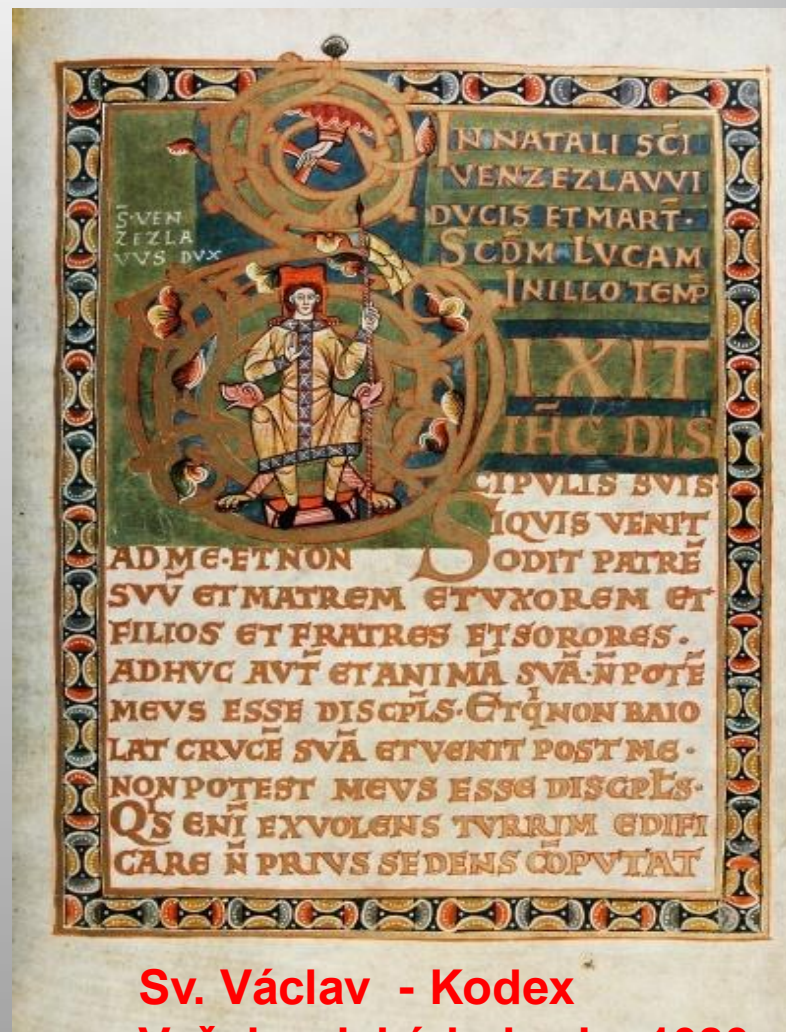 IN NATALI SC̄I
VENZEZLAVVI
DVCIS ET MART̄·
SCD̄M LVCAM
IN ILLO TEMP̄
S̄·VEN
ZEZLA
VVS DVX
DIXIT
IH̄C DIS
CIPVLIS SVIS·
SIQVIS VENIT
AD ME·ET NON ODIT PATRĒ
SVV̄ ET MATREM ET VXOREM ET
FILIOS ET FRATRES ET SORORES·
ADHVC AVT̄ ET ANIMĀ SVĀ·N̄ POTĒ
MEVS ESSE DISCP̄LS·ET Q̄I NON BAIO
LAT CRVCĒ SVĀ ET VENIT POST ME·
NON POTEST MEVS ESSE DISCPL̄S·
QIS ENĪ EX VOLENS TVRRIM EDIFI
CARE N̄ PRIVS SEDENS CŌPVTAT
Sv. Václav - Kodex